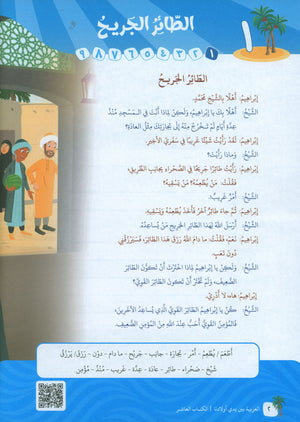 ١
الطّائِرُ الجَريحُ
١ ٢ ٣ ٤ ٥ ٦ ٧ ٨ ٩
الطّائِرُ الجَريحُ
إبْراهيمُ: أهْلًا بِالشَّيْخِ مُحَمَّدٍ.
الشَّيْخُ: أهْلًا بِكَ يا إبْراهيمُ، وَلَكِنْ لِماذا أنْتَ في المَسْجِدِ مُنْذُ
عِدَّةِ أيّامٍ لَمْ تَخْرُجْ مِنْهُ إلى تِجارَتِكَ مِثْلَ العادَةِ؟
إبْراهيمُ: لَقَدْ رَأيْتُ شَيْئًا غَريبًا في سَفَري الأخيرِ.
الشَّيْخُ: وَماذا رَأيْتَ؟
إبْراهيمُ: رَأيْتُ طائِرًا جَريحًا في الصَّحْراءِ بِجانِبِ الطَّريقِ،
فَقُلْتُ: مَنْ يُطْعِمُهُ؟ مَنْ يَسْقيهِ؟
الشَّيْخُ: أمْرٌ غَريبٌ.
إبْراهيمُ: ثُمَّ جاءَ طائِرٌ آخَرُ فَأخَذَ يُطْعِمُهُ وَيَسْقيهِ.
الشَّيْخُ: أرْسَلَ اللهُ لِهَذا الطّائِرِ الجَريحِ مَنْ يُساعِدُهُ.
إبْراهيمُ: نَعَمْ، فَقُلْتُ: ما دامَ اللهُ رَزَقَ هَذا الطّائِرَ، فَسَيَرْزُقُني
دونَ تَعَبٍ.
الشَّيْخُ: وَلَكِنْ يا إبْراهيمُ لِماذا اخْتَرْتَ أنْ تَكونَ الطّائِرَ
الضَّعيفَ، وَلَمْ تَخْتَرْ أنْ تَكونَ الطّائِرَ القَوِيَّ؟
إبْراهيمُ: هاه، لا أدْري.
الشَّيْخُ: كُنْ يا إبْراهيمُ الطّائِرَ القَوِيَّ الَّذي يُساعِدُ الآخَرينَ،
فَالمُؤْمِنُ القَوِيُّ أحَبُّ عِنْدَ اللهِ مِنَ المُؤْمِنِ الضَّعيفِ.
أطْعَمَ / يُطْعِمُ - أمْر - تِجارَة - جانِب - جَريح - ما دامَ - دونَ - رَزَقَ / يَرْزُقُ
شَيْخ - صَحْراء - طائِر - عادَة - عِدَّة - غَريب - مُنْذُ - مُؤْمِن
٢ العربية بين يدي أولادنا | الكتاب العاشر